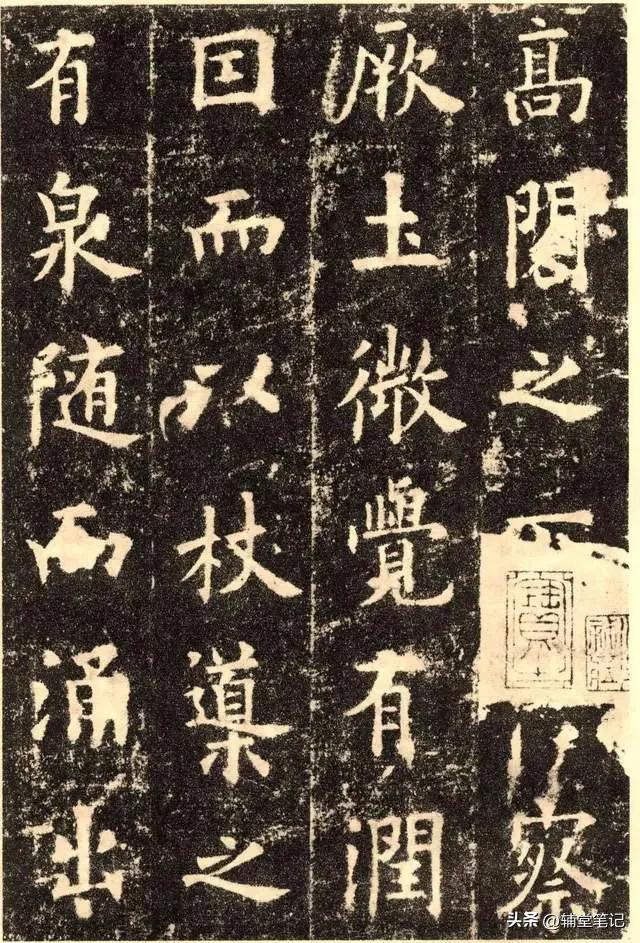 髙閣之察
厥土微覺有潤
囙而以杖導之
有泉随而涌出
头条 @辅堂笔记